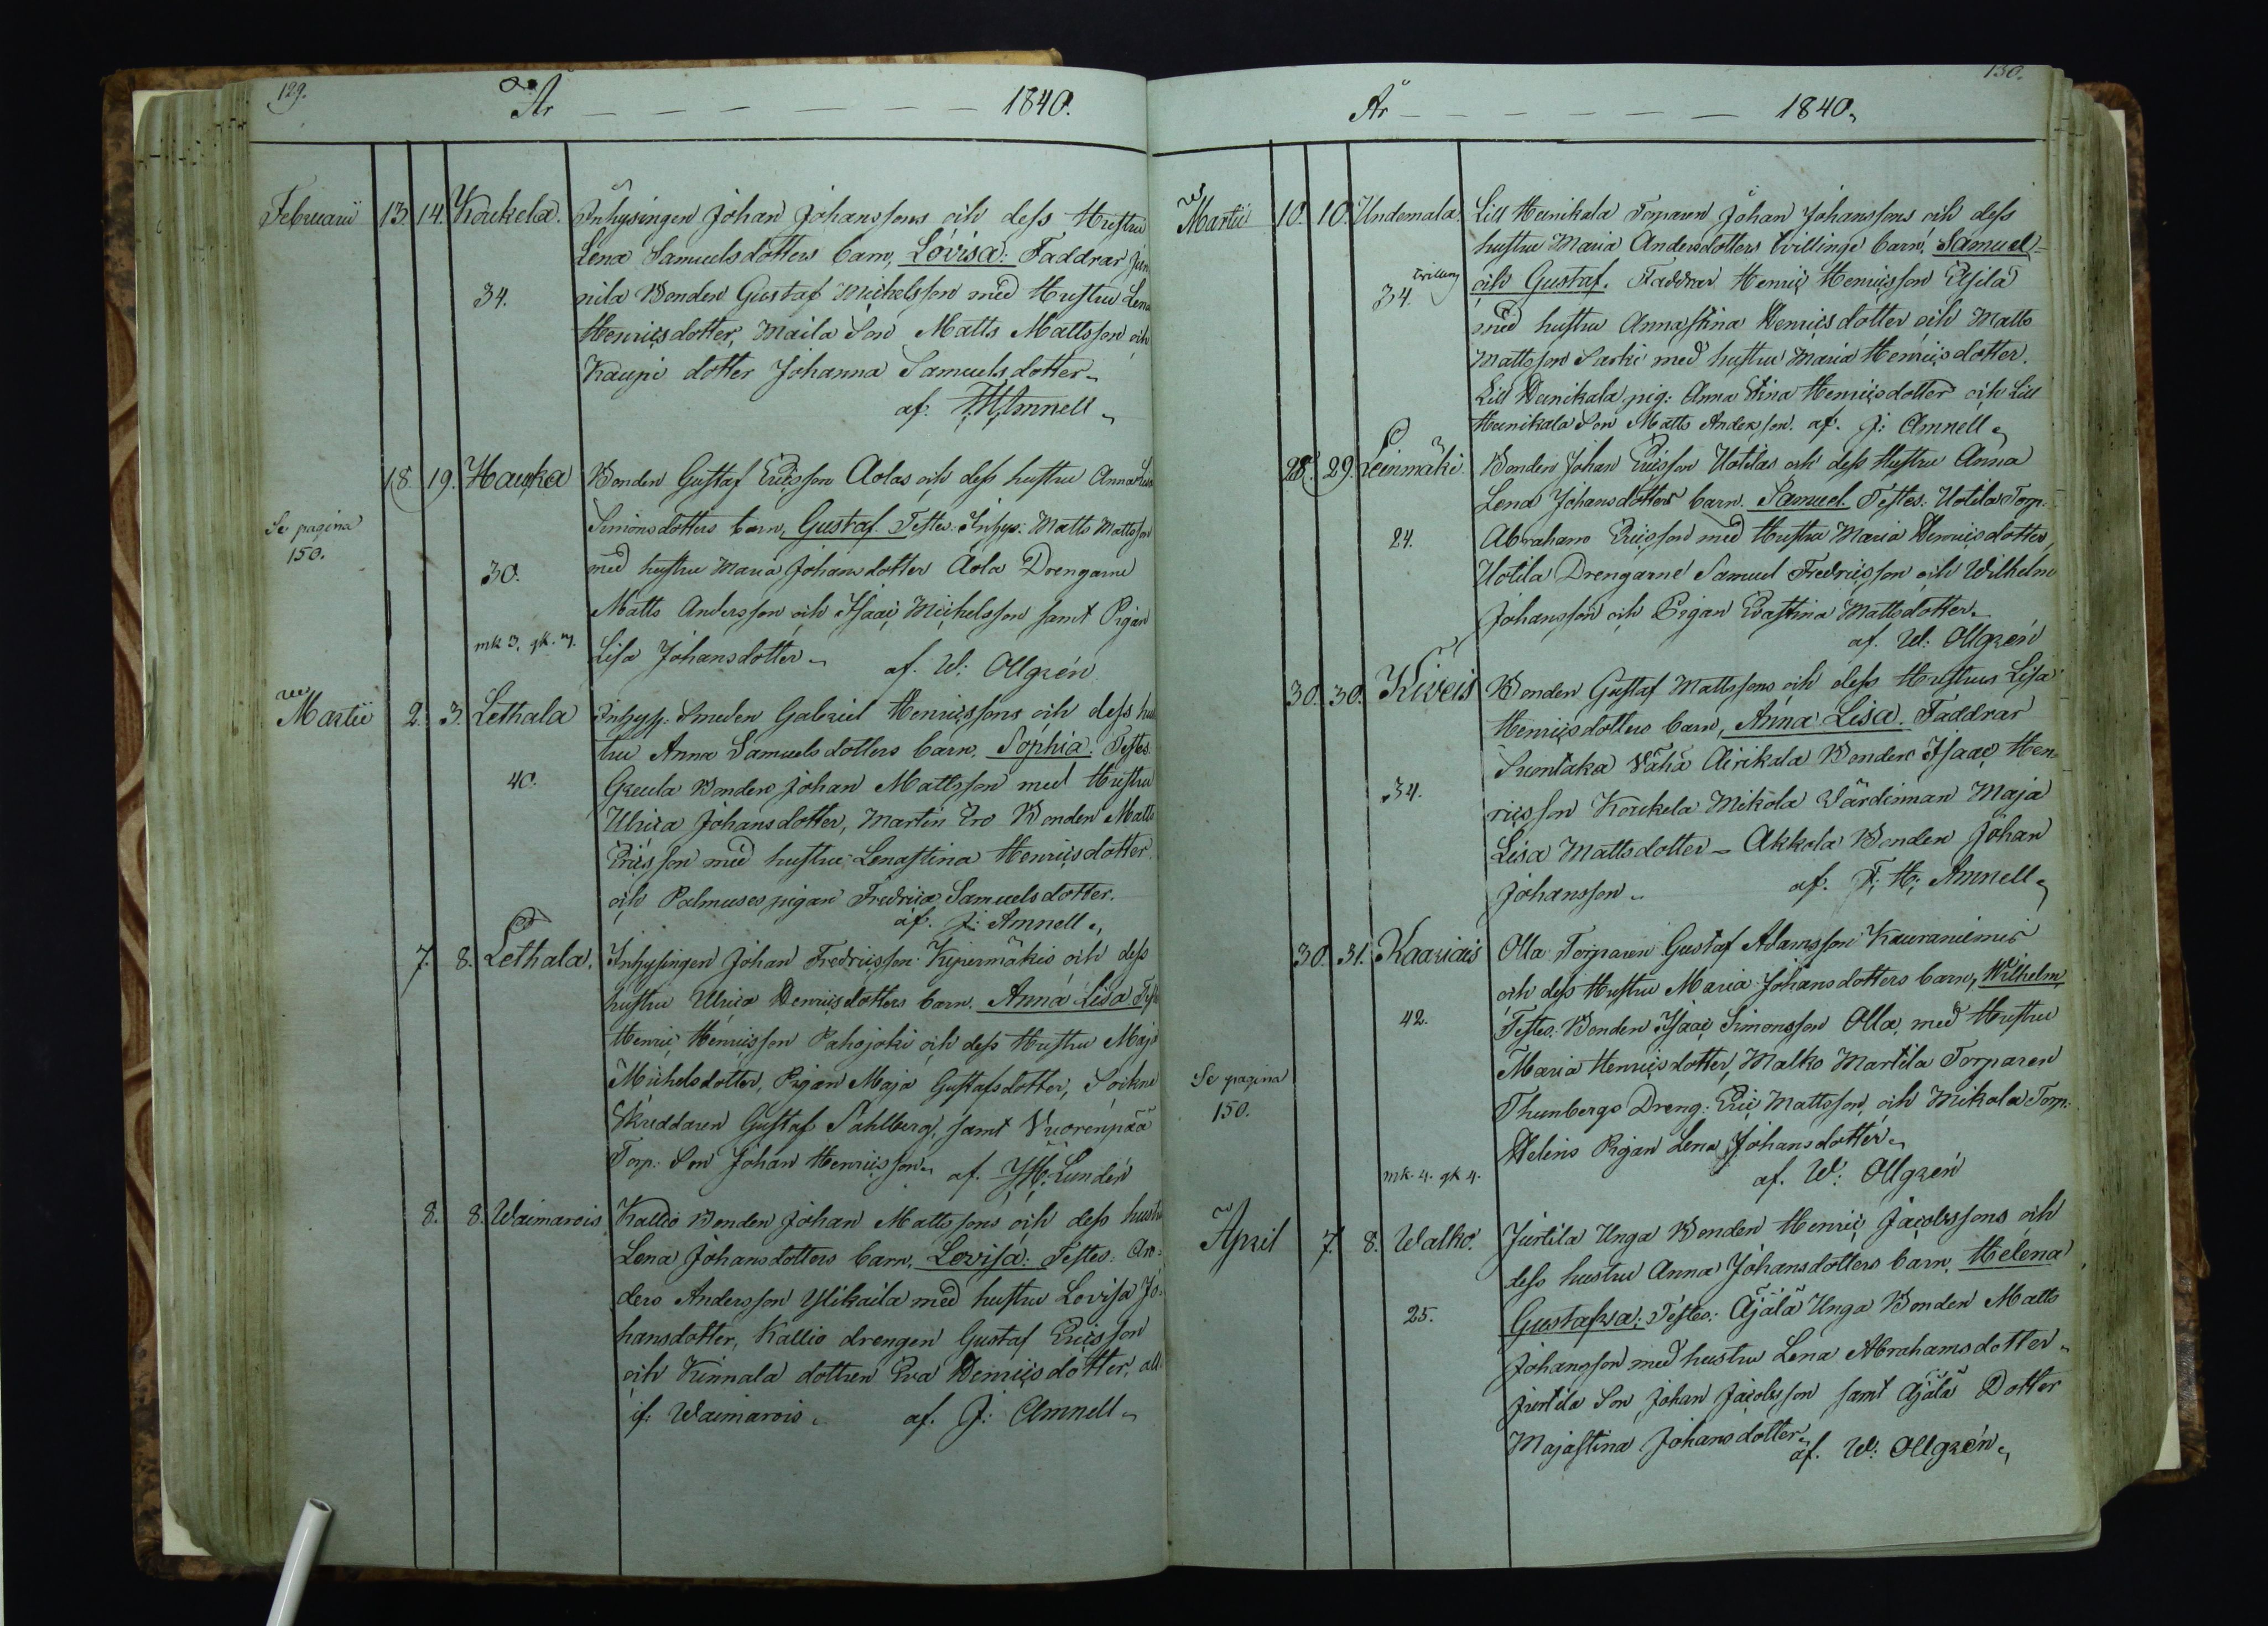 129.
År 1840.
Februarii 13. 14. Koukela. Inhysingen Johan Johanssons och dess Hustru
Lena Samuelsdotters barn, Lovisa: Faddrar
34. nila Bonden Gustaf Michelsson med Hustru Lena
Henricsdotter, Maila Son Matts Mattsson och
Kaupi dotter Johanna Samuelsdotter
af. F. H. Amnell
18. 19. Hauka Bonden Gustaf Ericsson Aolas och dess hustru Anna Lisa
Se pagina 150. Simonsdotters barn, Gustaf. Testes: Inhys: Matts Mattsson
30. med hustru Maria Johansdotter Aola Drengarne
Matts Andersson och Isaac Michelsson samt Pigan
mk 3, qk. Lisa Johansdotter af. W: Ollgrén
Martii 2. 3. Lethala Inhys: Smeden Gabriel Henricssons och dess hus
tru Anna Samuelsdotters barn. Sophia: Testes.
40. Greula Bonden Johan Mattsson med Hustru
Ulrica Johansdotter, Martin Ero Bonden Matts
Ericsson med hustru Lenastina Henricsdotter.
och Palmuses pigan Fredrica Samuelsdotter.
af. J: Amnell
7. 8. Lethala. Inhysingen Johan Fredricsson Kipermäkis och dess
hustru Ulrica Henricsdotters barn. Anna Lisa
Henric Henricsson Pahojoki och dess Hustru Maja
Michelsdotter, Pigan Maja Gustafsdotter, Sockne
Skräddaren Gustaf Sahlberg, samt Vuorenpää
Torp. Son Johan Henricsson. af. Lundén
8. 8. Waimarois Kallio Bonden Johan Mattssons och dess hustru
Lena Johansdotters barn, Lovisa: Testes: An
ders Andersson Ylikaila med hustru Lovisa Jo
hansdotter, Kallio drengen Gustaf Ericsson
och Kinnala dottren Eva Henricsdotter, all
if: Waimarois af. J: Amnell
150.
År 1840.
Martii 10. 10. Undemala. Lill Heinikala Torparen Johan Johanssons och dess
hustru Maria Andersdotters tvillinge barn, Samuel
Tvilling 34. och Gustaf. Faddrar Henric Henricsson
med hustru Annastina Henricsdotter och Matts
Mattsson Sarki med hustru Maria Henricsdotter.
Lill Heinikala pig: Anna Stina Henricsdotter och Lill
Heinikala Son Matts Andersson. af. J: Amnell
28. 29. Leinmäki. Bonden Johan Ericsson Uotilas och dess Hustru Anna
Lena Johansdotters barn. Samuel. Testes: Uotila Torp:
24. Abraham Ericsson med Hustru Maria Henricsdotter,
Uotila Drengarne Samuel Fredricsson och Wilhelm
Johansson och Pigan Evastina Mattsdotter.
af. W: Ollgrén
30. 30. Kiveis Bonden Gustaf Mattssons och dess Hustrus Lisa
Henricsdotters barn, Anna Lisa. Faddrar
Suontaka Vähä Äirikala Bonden Isaac Hen
34. ricsson Koukela Mikola Värdinnan Maja
Lisa Mattsdotter - Akkola Bonden Johan
Johansson af. F. H: Amnell
30. 31. Kaariais Olla Torparen Gustaf Adamsson Kauraniemis
och dess Hustru Maria Johansdotters barn, Wilhelm
42. Testes. Bonden Isaac Simonsson Olla, med Hustru
Maria Henricsdotter, Malko Martila Torparen
Se pagina 150. Thunbergs Dreng: Eric Mattsson, och Mikola Torp:
Helins Pigan Lena Johansdotter
mk. 4. qk 4. af. W: Ollgrén
April 7. 8. Walko. Jurtila Unga Bonden Henric Jacobssons och
dess hustru Anna Johansdotters barn. Helena
25. Gustafwa: Testes: Äjälä Unga Bonden Matts
Johansson med hustru Lena Abrahamsdotter
Jurtila Son Johan Jacobsson samt Äjälä Dotter
Majastina Johansdotter
af. W: Ollgrén